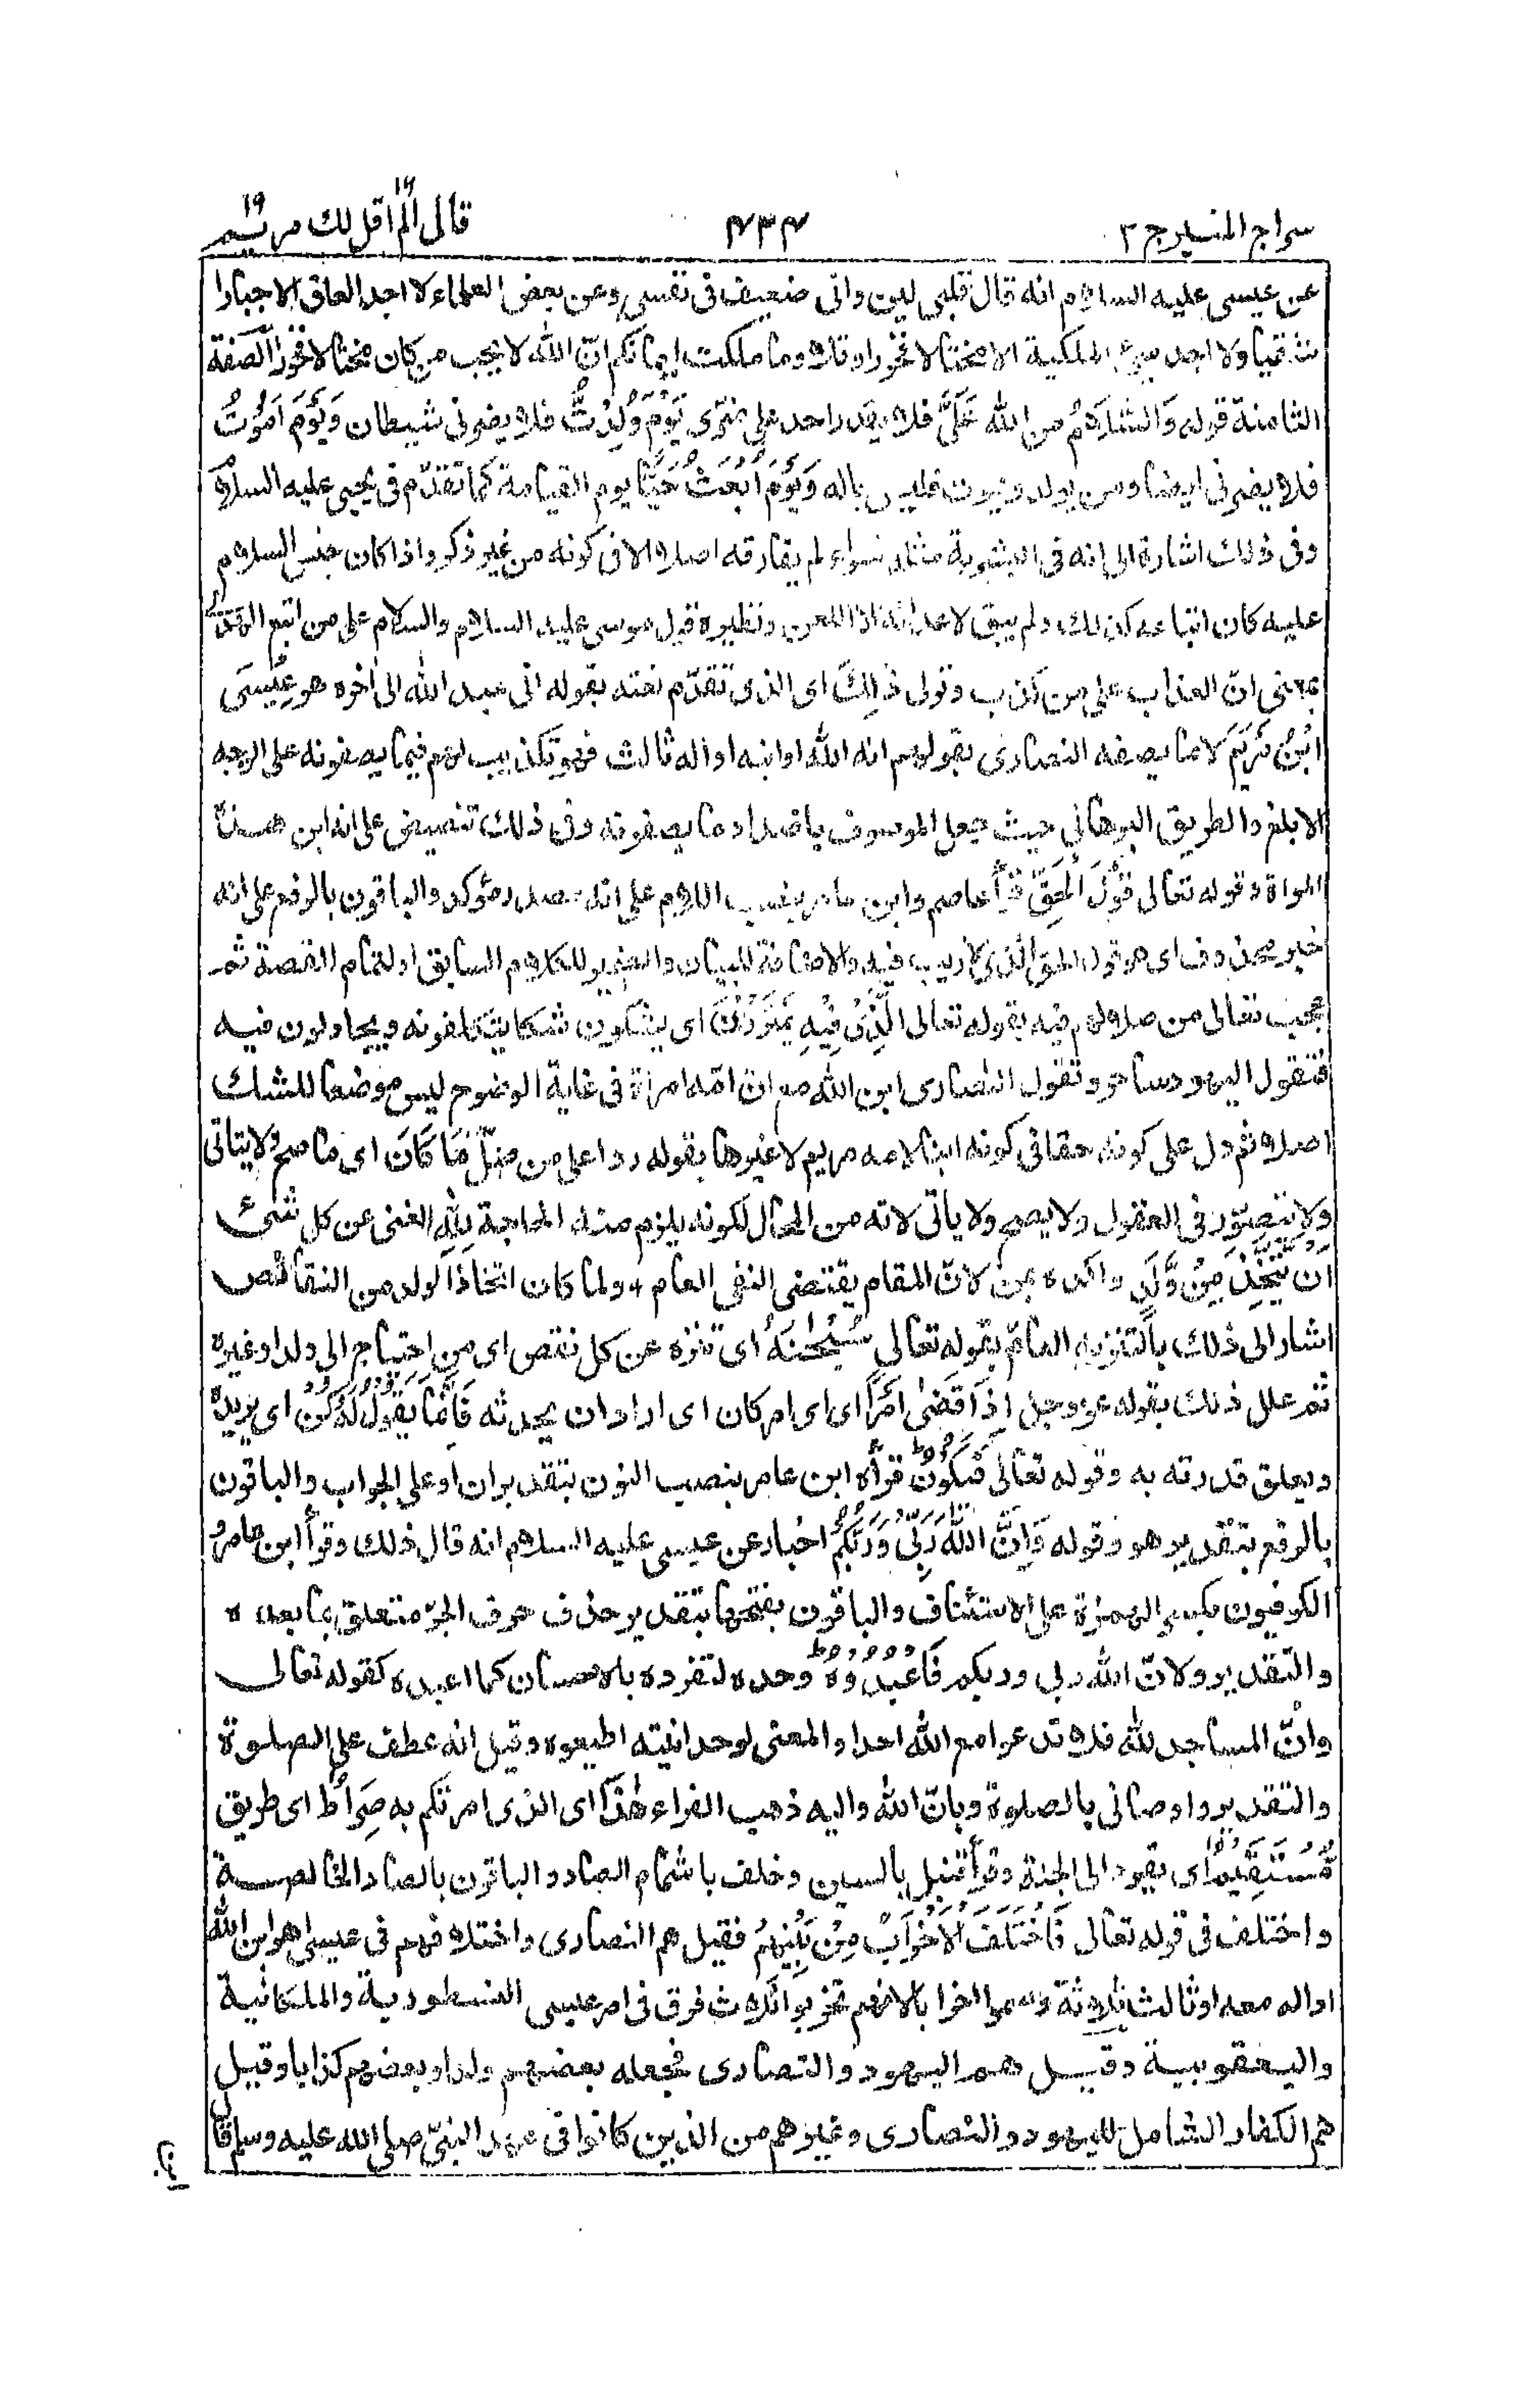 سراج المنير ج ٢ ٤٣٣ قال الم ١٦ اقل لك مريم ١٩
عن عيسى عليه السلام انه قال قلبى لين وانى ضعيف فى نفسى وعن بعض العلماء لا اجد العاق الا جبارا
شقيا ولا اجد سيئ الملكية الا مختالا فخورا وتلا وما ملكت ايمانكم انّ الله لا يحب من كان مختالا فخورا الصفة
الثامنة قوله وَالسَّلَامُ من الله عَلَيَّ فلا يقدر احد على ضرى يَوْمَ وُلِدْتُّ فلا يضرنى شيطان وَيَوْمَ اَمُوْتُ
فلا يضرنى ايضا ومن يولد ويموت فليس باله وَيَوْمَ اُبْعَثُ حَيًّا يوم القيامة كما تقدّم فى يحيى عليه السلام
وفى ذلك اشارة الى انه فى البشرية مثله سواء لم يفارقه اصلا الا فى كونه من غير ذكر واذا كان جنس السلام
عليه كان اتباعه كذلك ولم يبق لاعدائه الا اللعن ونظيره قول موسى عليه السلام والسلام على من اتبع الهدى
بمعنى انّ العذاب على من كذب وتولى ذٰلِكَ اى الذى تقدّم نعته بقوله انى عبد الله الى اٰخره هو عِيْسَى
ابْنُ مَرْيَمَ لا ما يصفه النصارى بقولهم انه الله او ابنه او اله ثالث فهو تكذيب لهم فيما يصفونه على الوجه
الابلغ والطريق البرهانى حيث جعل الموصوف باضداد ما يصفونه وفى ذلك تنصيص على انه ابن هذه
المراة وقوله تعالى قَوْلَ الْحَقِّ قرأ عاصم وابن عامر بنصب اللام على انه مصدر مؤكد والباقون بالرفع على انه
خبر محذوف اى هو قول الحق الذى لا ريب فيه والاضافة للبيان والضمير للكلام السابق او لتمام القصة ثم
عجب تعالى من ضلالهم فيه بقوله تعالى الَّذِيْ فِيْهِ يَمْتَرُوْنَ اى يشكون شكا يتكلفونه ويجادلون فيه
فتقول اليهود ساحر وتقول النصارى ابن الله مع ان امّه امرأة فى غاية الوضوح ليس موضعا للشك
اصلا ثم دل على كونه حقا فى كونه ابنا لامه مريم لا غيرها بقوله ردا على من ضلّ مَا كَانَ اى ما صح ولا يتاتى
ولا يتصوّر فى العقول ولا يصح ولا ياتى لانه من المحال لكونه يلزم منه الحاجة لِلّٰهِ الغنى عن كل شئ
اَنْ يَّتَّخِذَ مِنْ وَّلَدٍ واكده بمن لانّ المقام يقتضى النفى العام ولما كان اتخاذ الولد من النقائص
اشار الى ذلك بالتنزيه العام بقوله تعالى سُبْحٰنَهٗ اى تنزه عن كل نقص اى من احتياج الى ولد او غيره
ثم علل ذلك بقوله عز وجل اِذَا قَضٰى اَمْرًا اى اى امر كان اى اراد ان يحدثه فَاِنَّمَا يَقُوْلُ لَهٗ كُنْ اى يريده
ويعلق قدرته به وقوله تعالى فَيَكُوْنُ ط قرأه ابن عامر بنصب النون بتقدير ان او على الجواب والباقون
بالرفع بتقدير هو وقوله وَاِنَّ اللّٰهَ رَبِّىْ وَرَبُّكُمْ اخبار عن عيسى عليه السلام انه قال ذلك وقرأ ابن عامر و
الكوفيون بكسر الهمزة على الاستئناف والباقون بفتحها بتقدير حذف حرف الجرّ متعلق بما بعده
والتقدير ولانّ الله ربى وربكم فَاعْبُدُوْهُ ط وحده لتفرده بالاحسان كما اعبده كقوله تعالى
وانّ المساجد لله فلا تدعوا مع الله احدا والمعنى لوحدانيته اطيعوه وقيل انه عطف على الصلوة
والتقدير واوصانى بالصلوة وبانّ الله واليه ذهب الفراء هٰذَا اى الذى امرتكم به صِرَاطٌ اى طريق
مُّسْتَقِيْمٌ اى يقود الى الجنة وقرأ قنبل بالسين وخلف باشمام الصاد والباقون بالصاد الخالصة
واختلف فى قوله تعالى فَاخْتَلَفَ الْاَحْزَابُ مِنْ بَيْنِهِمْ فقيل هم النصارى واختلافهم فى عيسى اهو ابن الله
او اله معه او ثالث ثلاثة وسموا احزابا لانهم تحزبوا ثلاث فرق فى امر عيسى النسطورية والملكانية
واليعقوبية وقيل هم اليهود والنصارى فجعله بعضهم ولدا وبعضهم كذابا وقيل
هم الكفار الشامل لليهود والنصارى وغيرهم من الذين كانوا فى عهد النبىّ صلى الله عليه وسلم قال